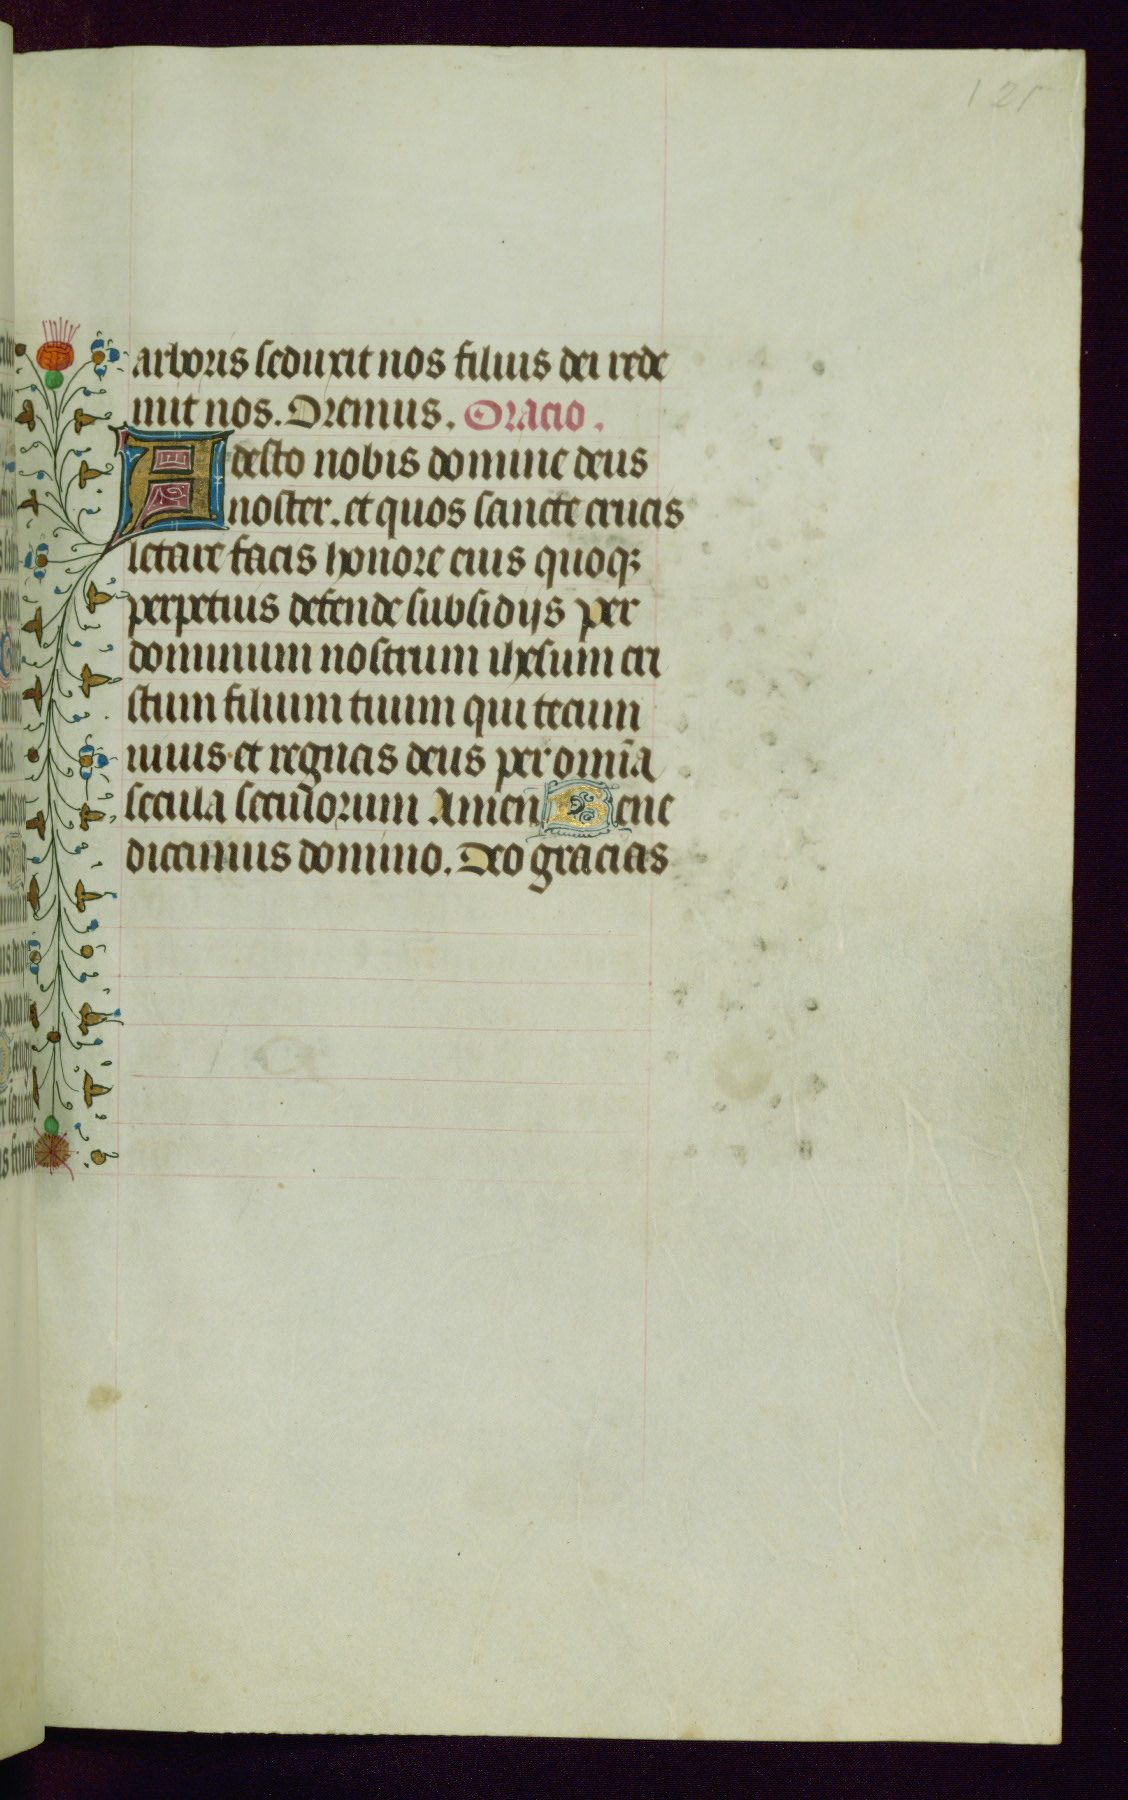 121
arboris seduxit nos filius dei rede
mit nos. Oremus. Oracio.
Adesto nobis domine deus
noster. et quos sancte crucis
letare facis honore eius quoqꝫ
perpetuis defende subsidijs per
dominum nostrum ihesum cri
stum filium tuum qui tecum
uiuis et regnas deus per omnīa
secula seculorum Amen Bene
dicamus domino. Deo gracias